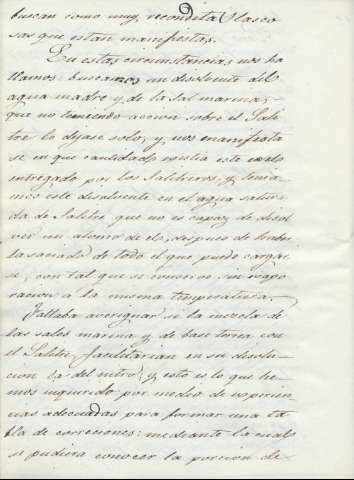 buscan como muy recondita las co
sas que estan manifiestas.
En estas circunstancias, nos ha
llamos: buscamos un disolvente del
agua madre y de la sal marina,
que no teniendo accion sobre el Sali
tre lo dejase solo, y nos manifesta
se en que cantidad venia este
entregado por los Salitreros, y tenia
mos este disolvente en el agua satura
da de Salitre que no es capaz de disol
ver un atomo de el, despues de haber
la saciado de todo el que puede cargar
se, con tal que se conserve sin evapo
racion á la misma temperatura.
Faltaba averiguar si la mezcla de
las sales marina y de base terrea con
el Salitre, facilitarian en su disolu
cion la del nitro; y esto es lo que he
mos inquirido por medio de esperien
cias adecuadas para formar una ta
bla de correciones: mediante la cual
se pudiera conocer la porcion de